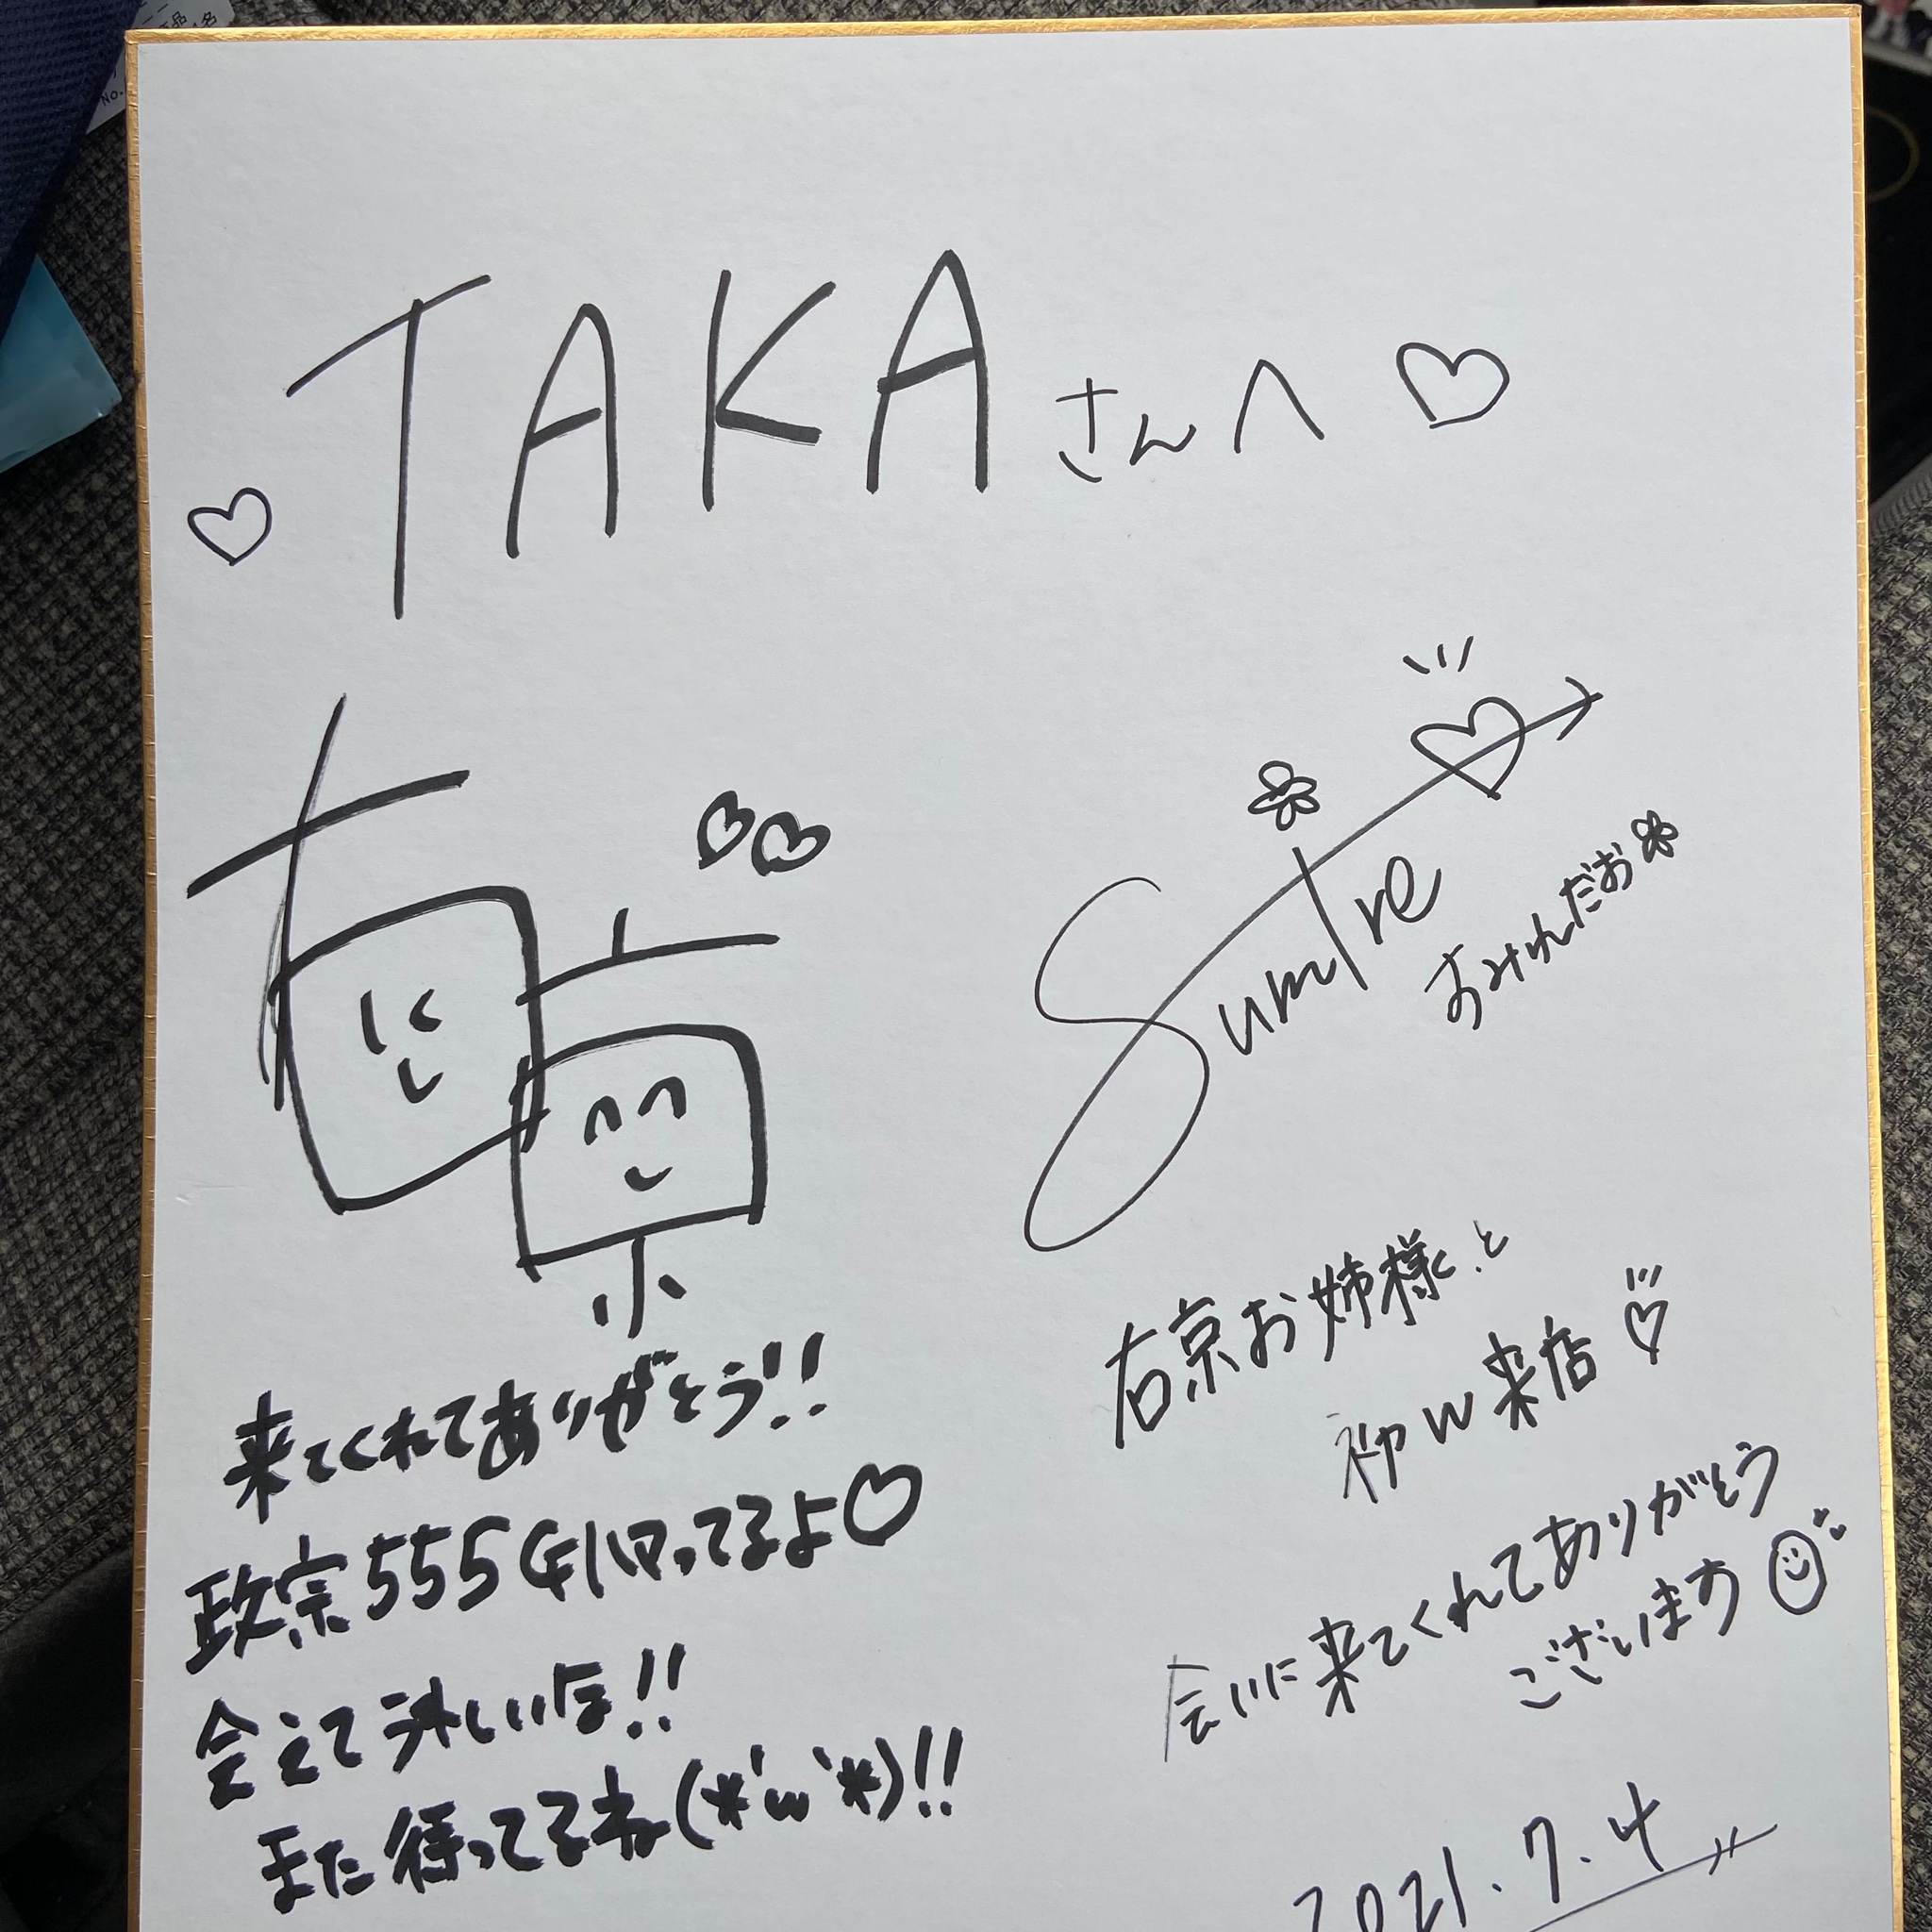 TAKAさんへ♡
右京
来てくれてありがとう!!
政宗555 ってるよ♡
会えて嬉しいな!!
また待ってるね(*'ω'*)!!
Sumire
すみれんだお
右京お姉様と
初W来店♡
会いに来てくれてありがとう
ございます
2021.7.4
No.